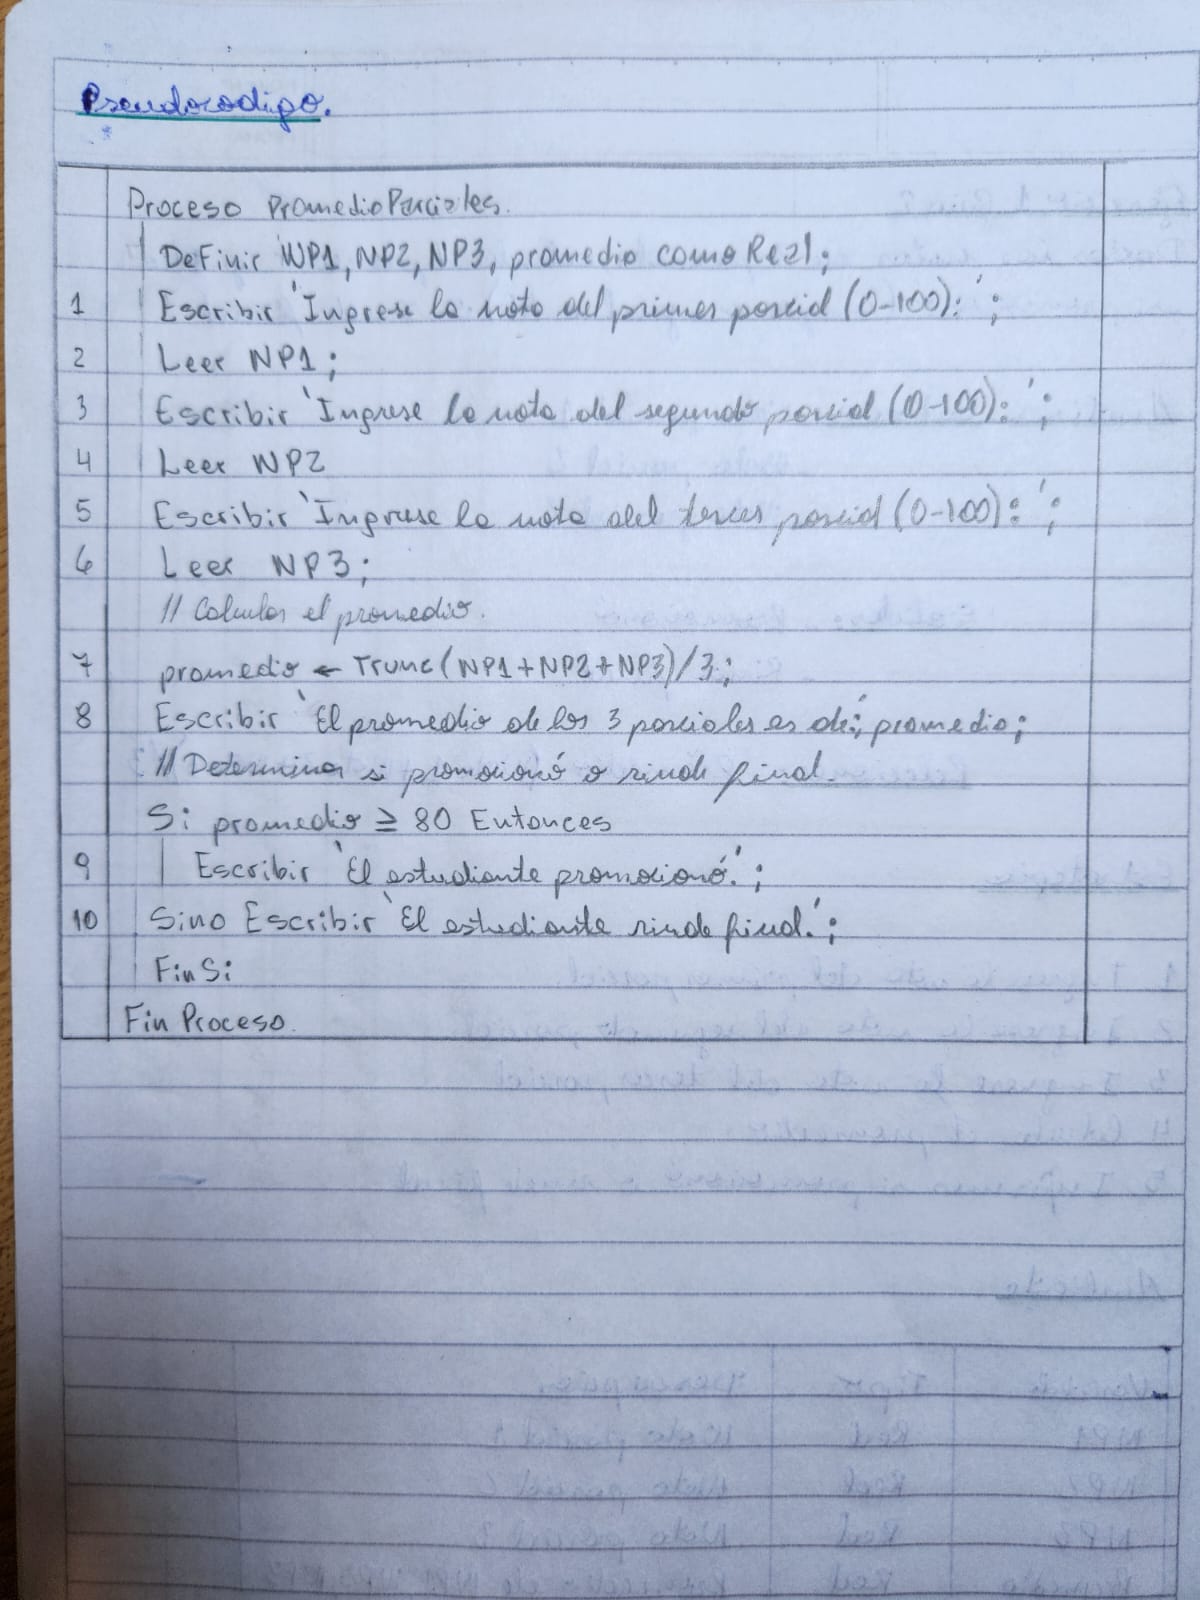 Pseudocodigo.
Proceso PromedioParciales.
Definir NP1, NP2, NP3, promedio como Real;
1 Escribir 'Ingrese la nota del primer parcial (0-100): ';
2 Leer NP1;
3 Escribir 'Ingrese la nota del segundo parcial (0-100): ';
4 Leer NP2
5 Escribir 'Ingrese la nota del tercer parcial (0-100): ';
6 Leer NP3;
// Calcular el promedio.
7 promedio ← Trunc(NP1+NP2+NP3)/3;
8 Escribir 'El promedio de los 3 parciales es de:', promedio;
// Determinar si promocionó o rinde final.
Si promedio ≥ 80 Entonces
9 Escribir 'El estudiante promocionó.';
10 Sino Escribir 'El estudiante rinde final.';
FinSi
Fin Proceso.